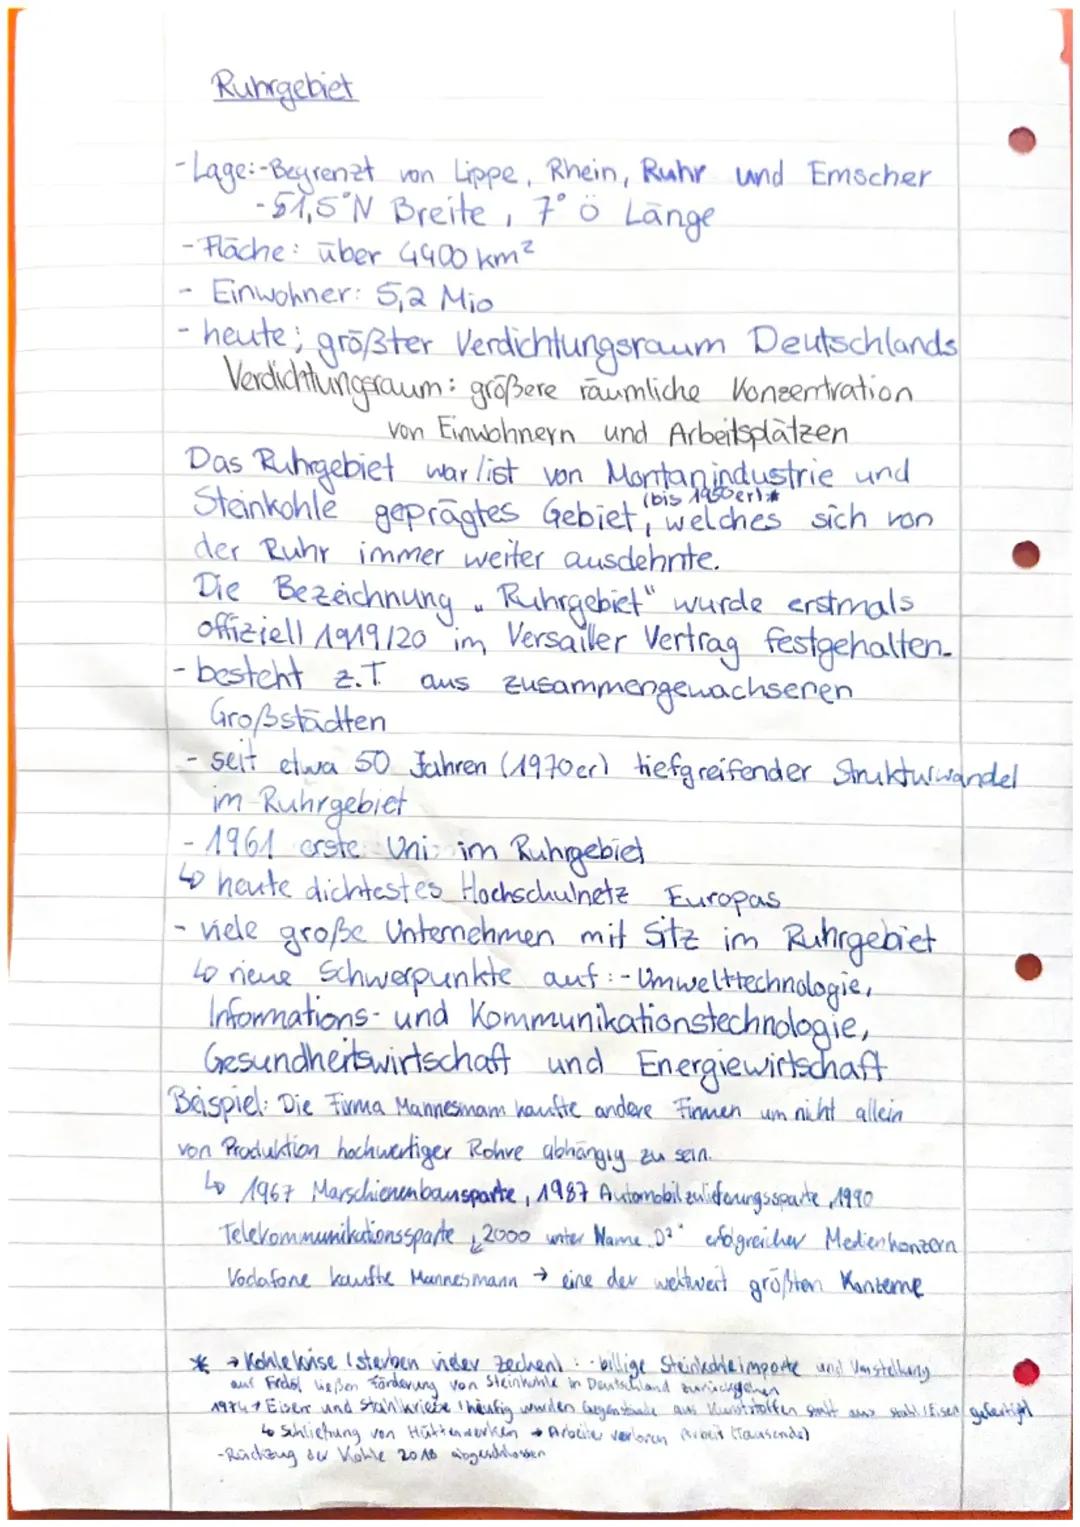 Ruhrgebiet
- Lage: - Begrenzt von Lippe, Rhein, Ruhr und Emscher
- 51,5°N Breite, 7° ö Länge
- Fläche: über 4400 km²
- Einwohner: 5,2 Mio
- heute; größter Verdichtungsraum Deutschlands
Verdichtungsraum: größere räumliche Konzentration
von Einwohnern und Arbeitsplätzen
Das Ruhrgebiet war/ist von Montanindustrie und
(bis 1950er)*
Steinkohle geprägtes Gebiet, welches sich von
der Ruhr immer weiter ausdehnte.
Die Bezeichnung „Ruhrgebiet" wurde erstmals
offiziell 1919/20 im Versailler Vertrag festgehalten.
- besteht z.T. aus zusammengewachsenen
Großstädten
- seit etwa 50 Jahren (1970er) tiefgreifender Strukturwandel
im Ruhrgebiet
- 1961 erste Uni im Ruhrgebiet
↳ heute dichtestes Hochschulnetz Europas
- viele große Unternehmen mit Sitz im Ruhrgebiet
↳ neue Schwerpunkte auf: - Umwelttechnologie,
Informations- und Kommunikationstechnologie,
Gesundheitswirtschaft und Energiewirtschaft
Beispiel: Die Firma Mannesmann kaufte andere Firmen um nicht allein
von Produktion hochwertiger Rohre abhängig zu sein.
↳ 1967 Marschienenbausparte, 1987 Automobilzulieferungssparte, 1990
Telekommunikationssparte, 2000 unter Name „D2" erfolgreicher Medienkonzern
Vodafone kaufte Mannesmann → eine der weltweit größten Konzerne
* → Kohlekrise (sterben vieler Zechen): - billige Steinkohleimporte und Umstellung
auf Erdöl ließen Förderung von Steinkohle in Deutschland zurückgehen
1974 → Eisen und Stahlkriese: häufig wurden Gegenstände aus Kunststoffen statt aus Stahl/Eisen gefertigt
↳ Schließung von Hüttenwerken → Arbeiter verloren Arbeit (Tausende)
- Rückzug der Kohle 2018 abgeschlossen